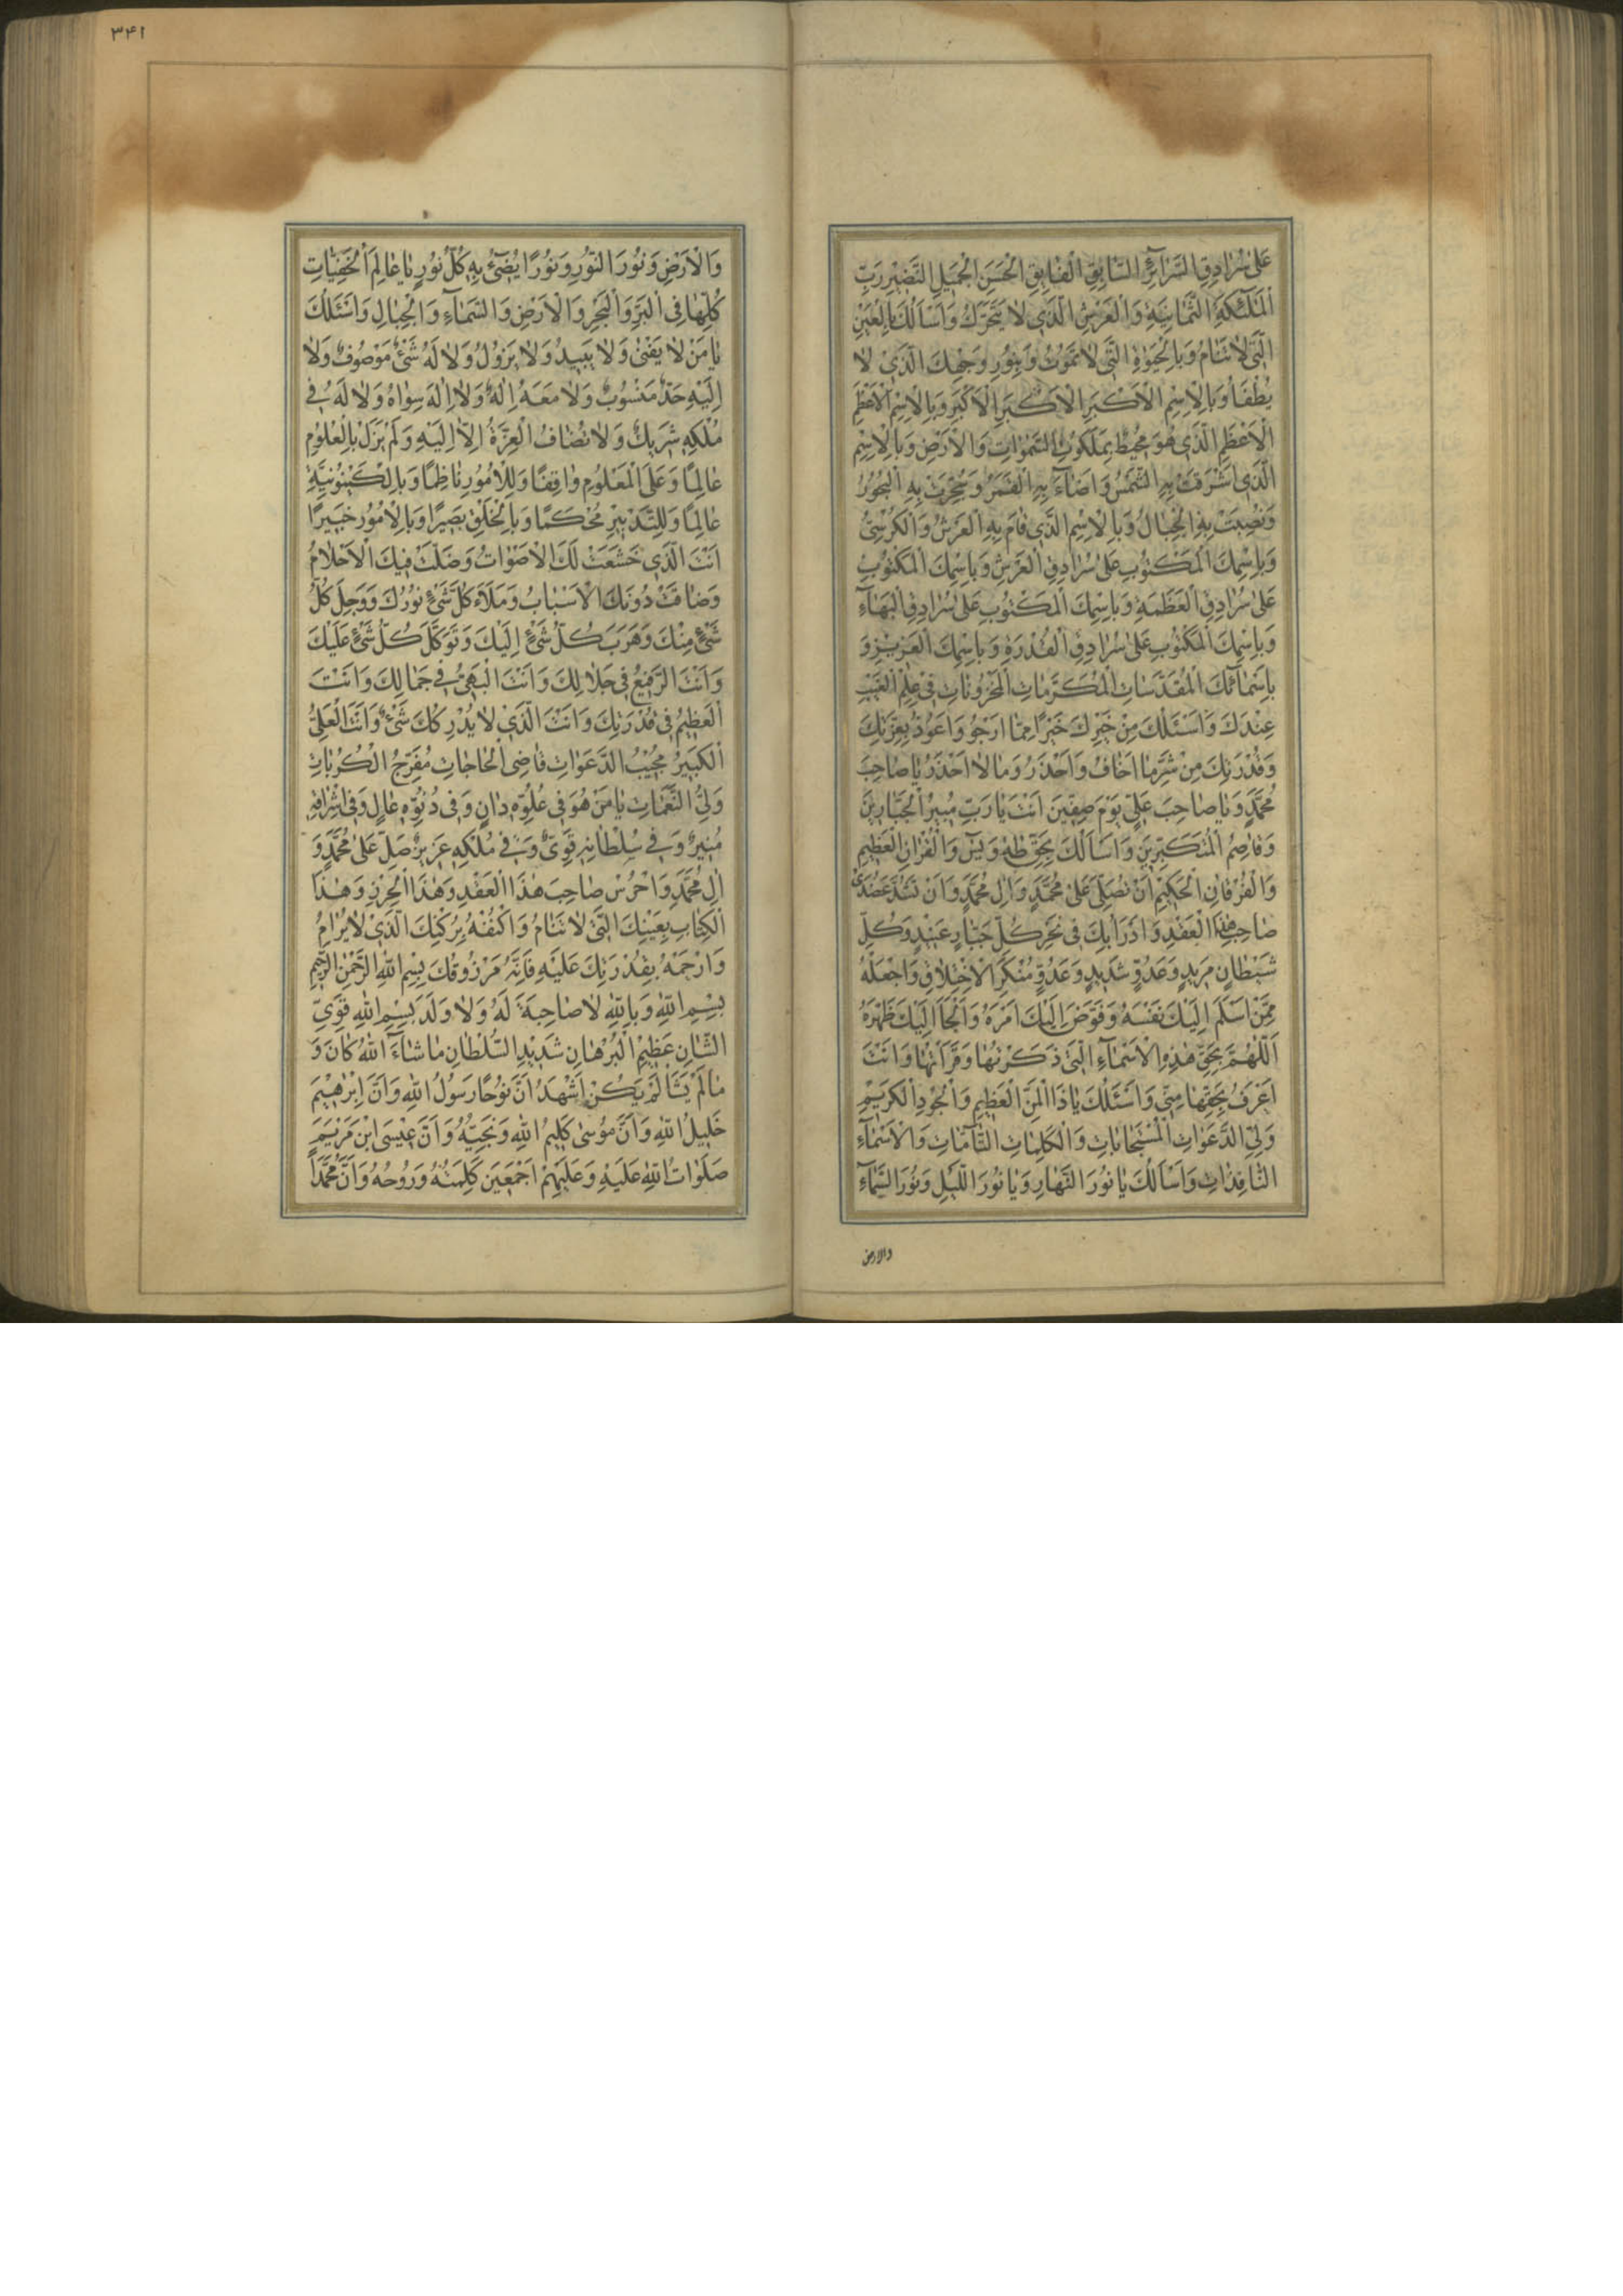 عَلىٰ سُرٰادِقِ السَّرٰائِرِ السّٰابِقِ الْفٰايِقِ الْحَسَنِ الْجَمِيلِ النَّضِيرِ رَبِّ
الْمَلٰئِكَةِ الثَّمٰانِيَةِ وَالْعَرْشِ الَّذِي لٰا يَتَحَرَّكُ وَاَسْاَلُكَ بِالْعَيْنِ
الَّتِي لٰا تَنٰامُ وَبِالْحَيٰوةِ الَّتِي لٰا تَمُوتُ وَبِنُورِ وَجْهِكَ الَّذِي لٰا
يُطْفَاُ وَبِالْاِسْمِ الْاَكْبَرِ الْاَكْبَرِ الْاَكْبَرِ وَبِالْاِسْمِ الْاَعْظَمِ
الْاَعْظَمِ الَّذِي هُوَ مُحِيطٌ بِمَلَكُوتِ السَّمٰوٰاتِ وَالْاَرْضِ وَبِالْاِسْمِ
الَّذِي اَشْرَقَتْ بِهِ الشَّمْسُ وَاَضٰاءَ بِهِ الْقَمَرُ وَسُجِّرَتْ بِهِ الْبُحُورُ
وَنُصِبَتْ بِهِ الْجِبٰالُ وَبِالْاِسْمِ الَّذِي قٰامَ بِهِ الْعَرْشُ وَالْكُرْسِيُّ
وَبِاسْمِكَ الْمَكْتُوبِ عَلىٰ سُرٰادِقِ الْعَرْشِ وَبِاسْمِكَ الْمَكْتُوبِ
عَلىٰ سُرٰادِقِ الْعَظَمَةِ وَبِاسْمِكَ الْمَكْتُوبِ عَلىٰ سُرٰادِقِ الْبَهٰاءِ
وَبِاسْمِكَ الْمَكْتُوبِ عَلىٰ سُرٰادِقِ الْقُدْرَةِ وَبِاسْمِكَ الْعَزِيزِ وَ
بِاَسْمٰائِكَ الْمُقَدَّسٰاتِ الْمُكَرَّمٰاتِ الْمَخْزُونٰاتِ فِي عِلْمِ الْغَيْبِ
عِنْدَكَ وَاَسْئَلُكَ مِنْ خَيْرِكَ خَيْرًا مِمّٰا اَرْجُو وَاَعُوذُ بِعِزَّتِكَ
وَقُدْرَتِكَ مِنْ شَرِّ مٰا اَخٰافُ وَاَحْذَرُ وَمٰا لٰا اَحْذَرُ يٰا صٰاحِبَ
مُحَمَّدٍ وَيٰا صٰاحِبَ عَلِيٍّ يَوْمَ صِفِّينَ اَنْتَ يٰا رَبِّ مُبِيرُ الْجَبّٰارِينَ
وَقٰاصِمُ الْمُتَكَبِّرِينَ وَاَسْاَلُكَ بِحَقِّ طٰهٰ وَيٰسۤ وَالْقُرْاٰنِ الْعَظِيمِ
وَالْفُرْقٰانِ الْحَكِيمِ اَنْ تُصَلِّيَ عَلىٰ مُحَمَّدٍ وَاٰلِ مُحَمَّدٍ وَاَنْ تَشُدَّ عَضُدَ
صٰاحِبِ هٰذَا الْعَقْدِ وَاَدْرَاُ بِكَ فِي نَحْرِ كُلِّ جَبّٰارٍ عَنِيدٍ وَكُلِّ
شَيْطٰانٍ مَرِيدٍ وَعَدُوٍّ شَدِيدٍ وَعَدُوٍّ مُنْكَرِ الْاَخْلٰاقِ وَاجْعَلْهُ
مِمَّنْ اَسْلَمَ اِلَيْكَ نَفْسَهُ وَفَوَّضَ اِلَيْكَ اَمْرَهُ وَاَلْجَاَ اِلَيْكَ ظَهْرَهُ
اَللّٰهُمَّ بِحَقِّ هٰذِهِ الْاَسْمٰاءِ الَّتِي ذَكَرْتُهٰا وَقَرَاْتُهٰا وَاَنْتَ
اَعْرَفُ بِحَقِّهٰا مِنِّي وَاَسْئَلُكَ يٰا ذَا الْمَنِّ الْعَظِيمِ وَالْجُودِ الْكَرِيمِ
وَلِيَّ الدَّعَوٰاتِ الْمُسْتَجٰابٰاتِ وَالْكَلِمٰاتِ التّٰامّٰاتِ وَالْاَسْمٰاءِ
النّٰافِذٰاتِ وَاَسْاَلُكَ يٰا نُورَ النَّهٰارِ وَيٰا نُورَ اللَّيْلِ وَنُورَ السَّمٰاءِ
والارض
٣۴١
وَالْاَرْضِ وَنُورَ النُّورِ وَنُورًا يُضِيءُ بِهِ كُلُّ نُورٍ يٰا عٰالِمَ الْخَفِيّٰاتِ
كُلِّهٰا فِي الْبَرِّ وَالْبَحْرِ وَالْاَرْضِ وَالسَّمٰاءِ وَالْجِبٰالِ وَاَسْئَلُكَ
يٰا مَنْ لٰا يَفْنىٰ وَلٰا يَبِيدُ وَلٰا يَزُولُ وَلٰا لَهُ شَيْءٌ مَوْصُوفٌ وَلٰا
اِلَيْهِ حَدٌّ مَنْسُوبٌ وَلٰا مَعَهُ اِلٰهٌ وَلٰا اِلٰهَ سِوٰاهُ وَلٰا لَهُ فِي
مُلْكِهِ شَرِيكٌ وَلٰا تُضٰافُ الْعِزَّةُ اِلّٰا اِلَيْهِ وَلَمْ يَزَلْ بِالْعُلُومِ
عٰالِمًا وَعَلَى الْمَعْلُومِ وٰاقِفًا وَلِلْاُمُورِ نٰاظِمًا وَبِالْكَيْنُونِيَّةِ
عٰالِمًا وَلِلتَّدْبِيرِ مُحْكِمًا وَبِالْخَلْقِ بَصِيرًا وَبِالْاُمُورِ خَبِيرًا
اَنْتَ الَّذِي خَشَعَتْ لَكَ الْاَصْوٰاتُ وَضَلَّتْ فِيكَ الْاَحْلٰامُ
وَضٰاقَتْ دُونَكَ الْاَسْبٰابُ وَمَلَاَ كُلَّ شَيْءٍ نُورُكَ وَوَجِلَ كُلُّ
شَيْءٍ مِنْكَ وَهَرَبَ كُلُّ شَيْءٍ اِلَيْكَ وَتَوَكَّلَ كُلُّ شَيْءٍ عَلَيْكَ
وَاَنْتَ الرَّفِيعُ فِي جَلٰالِكَ وَاَنْتَ الْبَهِيُّ فِي جَمٰالِكَ وَاَنْتَ
الْعَظِيمُ فِي قُدْرَتِكَ وَاَنْتَ الَّذِي لٰا يُدْرِكُكَ شَيْءٌ وَاَنْتَ الْعَلِيُّ
الْكَبِيرُ مُجِيبُ الدَّعَوٰاتِ قٰاضِي الْحٰاجٰاتِ مُفَرِّجُ الْكُرُبٰاتِ
وَلِيُّ النَّغَمٰاتِ يٰا مَنْ هُوَ فِي عُلُوِّهِ دٰانٍ وَفِي دُنُوِّهِ عٰالٍ وَفِي اِشْرٰاقِهِ
مُنِيرٌ وَفِي سُلْطٰانِهِ قَوِيٌّ وَفِي مُلْكِهِ عَزِيزٌ صَلِّ عَلىٰ مُحَمَّدٍ وَ
اٰلِ مُحَمَّدٍ وَاحْرُسْ صٰاحِبَ هٰذَا الْعَقْدِ وَهٰذَا الْحِرْزِ وَهٰذَا
الْكِتٰابِ بِعَيْنِكَ الَّتِي لٰا تَنٰامُ وَاكْنُفْهُ بِرُكْنِكَ الَّذِي لٰا يُرٰامُ
وَارْحَمْهُ بِقُدْرَتِكَ عَلَيْهِ فَاِنَّهُ مَرْزُوقُكَ بِسْمِ اللّٰهِ الرَّحْمٰنِ الرَّحِيمِ
بِسْمِ اللّٰهِ وَبِاللّٰهِ لٰا صٰاحِبَةَ لَهُ وَلٰا وَلَدَ بِسْمِ اللّٰهِ قَوِيِّ
الشّٰانِ عَظِيمِ الْبُرْهٰانِ شَدِيدِ السُّلْطٰانِ مٰا شٰاءَ اللّٰهُ كٰانَ وَ
مٰا لَمْ يَشَا لَمْ يَكُنْ اَشْهَدُ اَنَّ نُوحًا رَسُولُ اللّٰهِ وَاَنَّ اِبْرٰهِيمَ
خَلِيلُ اللّٰهِ وَاَنَّ مُوسىٰ كَلِيمُ اللّٰهِ وَنَجِيُّهُ وَاَنَّ عِيسَى ابْنَ مَرْيَمَ
صَلَوٰاتُ اللّٰهِ عَلَيْهِ وَعَلَيْهِمْ اَجْمَعِينَ كَلِمَتُهُ وَرُوحُهُ وَاَنَّ مُحَمَّدًا